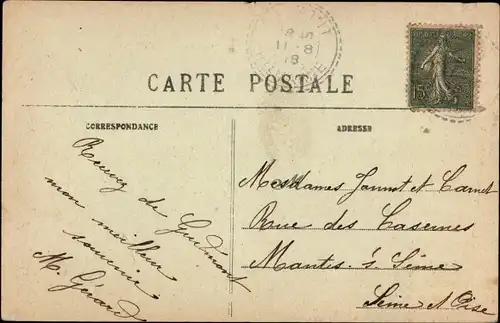 CARTE POSTALE
CORRESPONDANCE
ADRESSE
Recevez de Guémont
mon meilleur
souvenir
M. Gérard
Mesdames Jannot et Carnet
Rue des Casernes
Mantes s/ Seine
Seine et Oise
15c